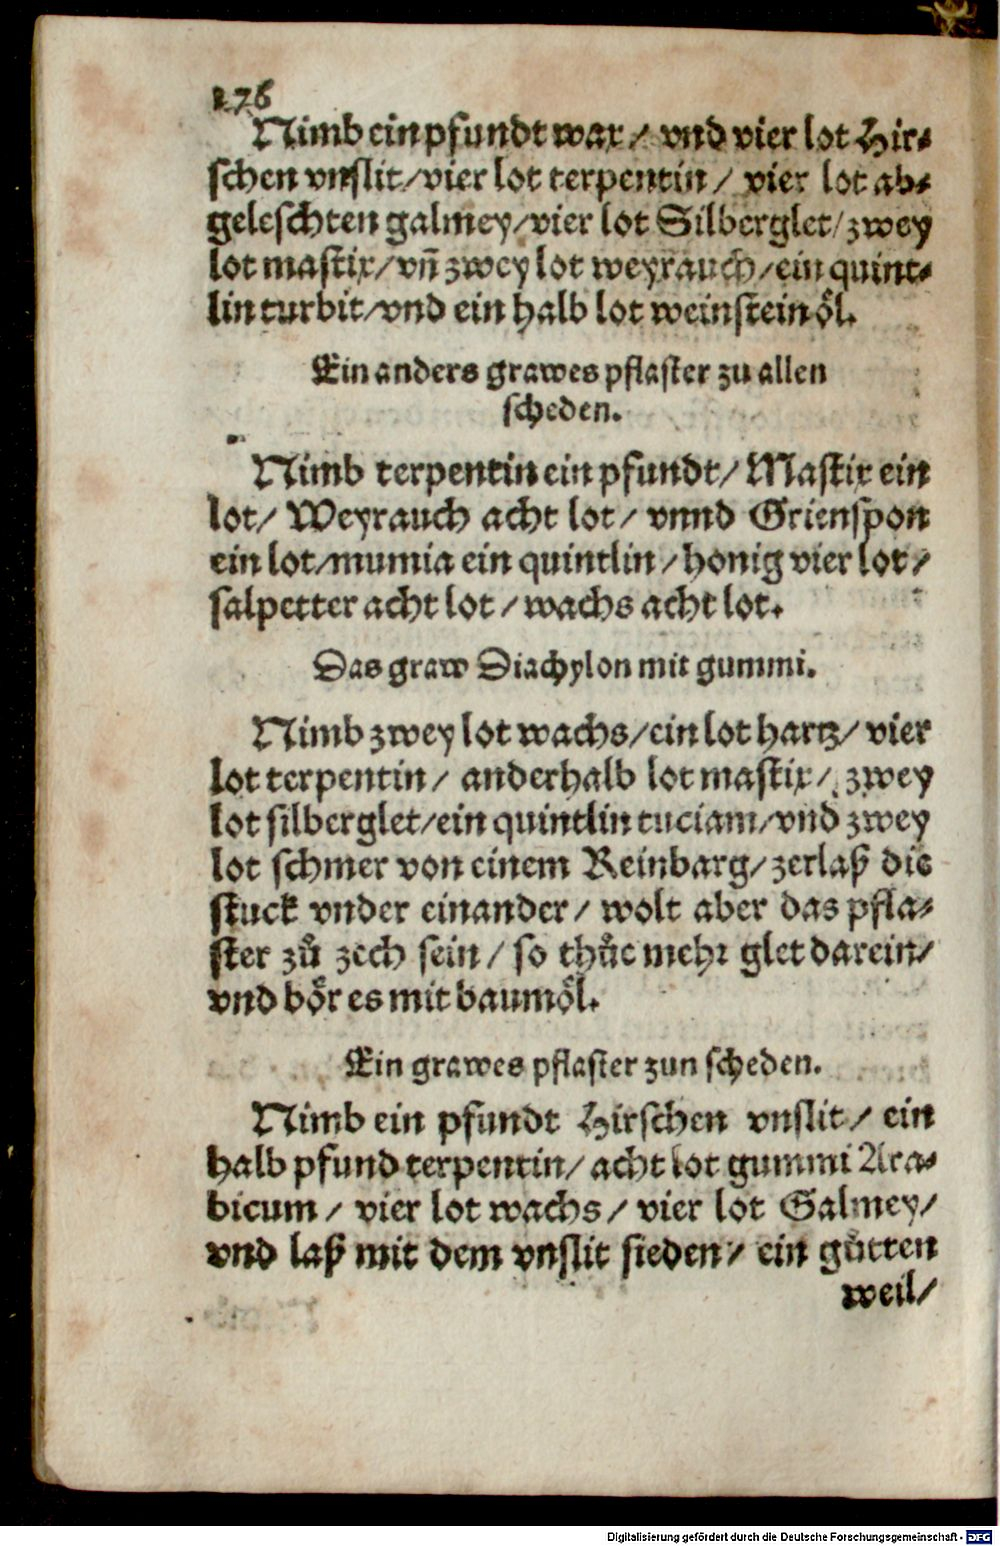 276
Nimb ein pfundt wax / vnd vier lot Hir⸗
schen vnslit / vier lot terpentin / vier lot ab⸗
geleschten galmey / vier lot Silberglet / zwey
lot mastix / vñ zwey lot weyrauch / ein quint⸗
lin turbit / vnd ein halb lot weinstein oͤl.
Ein anders grawes pflaster zu allen
scheden.
Nimb terpentin ein pfundt / Mastix ein
lot / Weyrauch acht lot / vnnd Grienspon
ein lot / mumia ein quintlin / honig vier lot /
salpetter acht lot / wachs acht lot.
Das graw Diachylon mit gummi.
Nimb zwey lot wachs / ein lot hartz / vier
lot terpentin / anderhalb lot mastix / zwey
lot silberglet / ein quintlin tuciam / vnd zwey
lot schmer von einem Reinbarg / zerlaß die
stuck vnder einander / wolt aber das pfla⸗
ster zuͦ zech sein / so thuͤe mehr glet darein /
vnd boͤr es mit baumoͤl.
Ein grawes pflaster zun scheden.
Nimb ein pfundt Hirschen vnslit / ein
halb pfund terpentin / acht lot gummi Ara⸗
bicum / vier lot wachs / vier lot Galmey /
vnd laß mit dem vnslit sieden / ein guͦtten
weil /
Digitalisierung gefördert durch die Deutsche Forschungsgemeinschaft - DFG